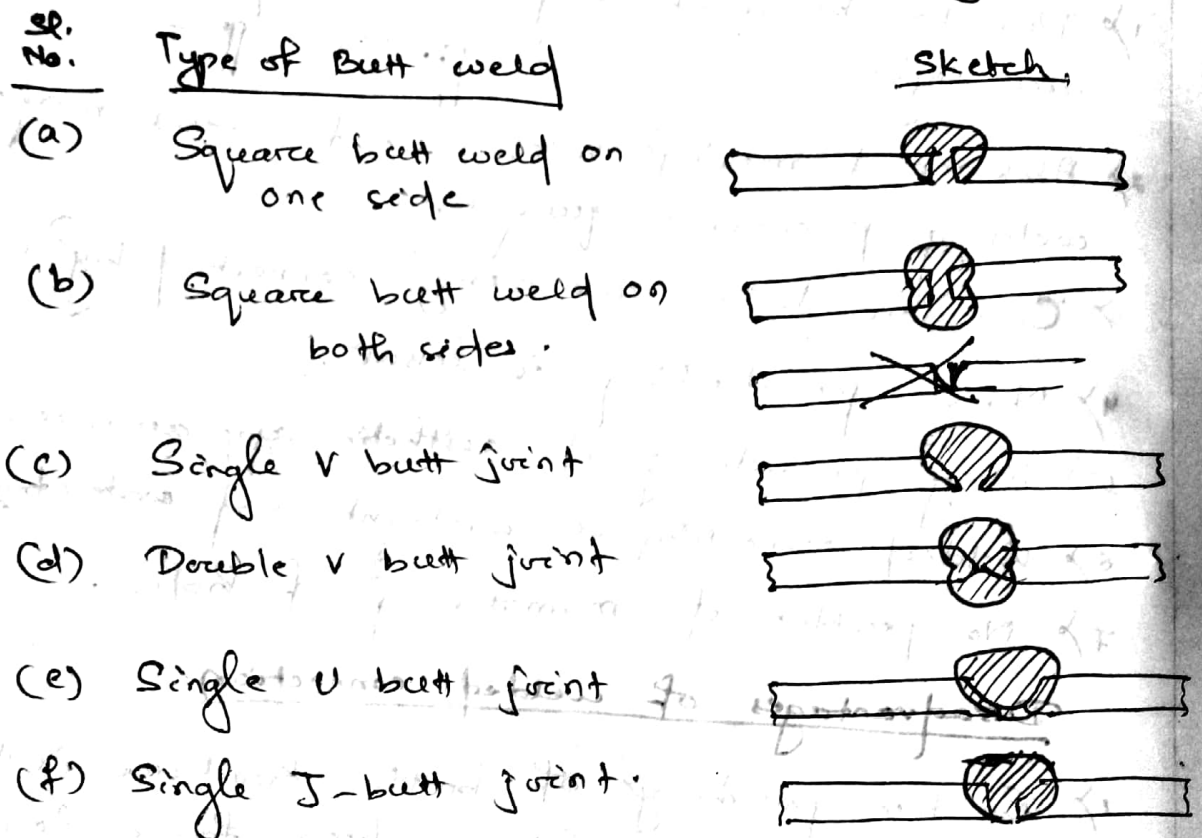 Sl. No. Type of Butt weld Sketch
(a) Square butt weld on
one side
(b) Square butt weld on
both sides.
(c) Single V butt joint
(d) Double V butt joint
(e) Single U butt joint
(f) Single J-butt joint.